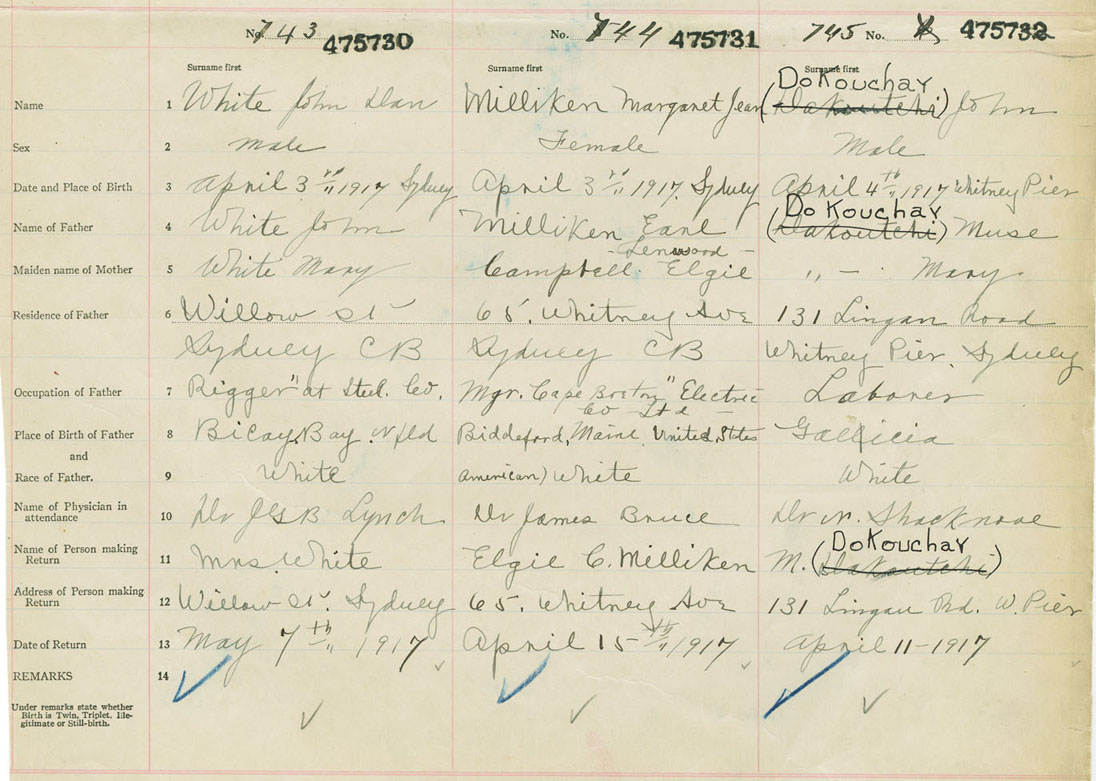 No. 743 475730 No. 744 475731 745 No. 475732
Surname first Surname first Surname first
DoKouchay
Name 1 White John Dan Milliken Margaret Jean (Dakoutchi) John
Sex 2 Male Female Male
Date and Place of Birth 3 April 3rd 1917 Sydney April 3rd 1917 Sydney April 4th 1917 Whitney Pier
Do Kouchay
Name of Father 4 White John Milliken Earl (Dakoutchi) Muse
- Lenwood -
Maiden name of Mother 5 White Mary Campbell Elgie " - Mary
Residence of Father 6 Willow St 65. Whitney Ave 131 Lingan Road
Sydney CB Sydney CB Whitney Pier, Sydney
Occupation of Father 7 Rigger" at Steel Co. Mgr. Cape Breton" Electric Laborer
Co Ltd -
Place of Birth of Father 8 Bay Nfld Biddeford, Maine, United States Gallicia
and
Race of Father. 9 White American) White White
Name of Physician in
attendance 10 Dr Lynch Dr James Bruce Dr N. Shacknove
DoKouchay
Name of Person making
Return 11 Mrs. White Elgie C. Milliken M. (Dakoutchi)
Address of Person making
Return 12 Willow St. Sydney 65. Whitney Ave 131 Lingan Rd. W. Pier
Date of Return 13 May 7th 1917 April 15th 1917 April 11-1917
REMARKS 14
Under remarks state whether
Birth is Twin, Triplet, Ille-
gitimate or Still-birth.